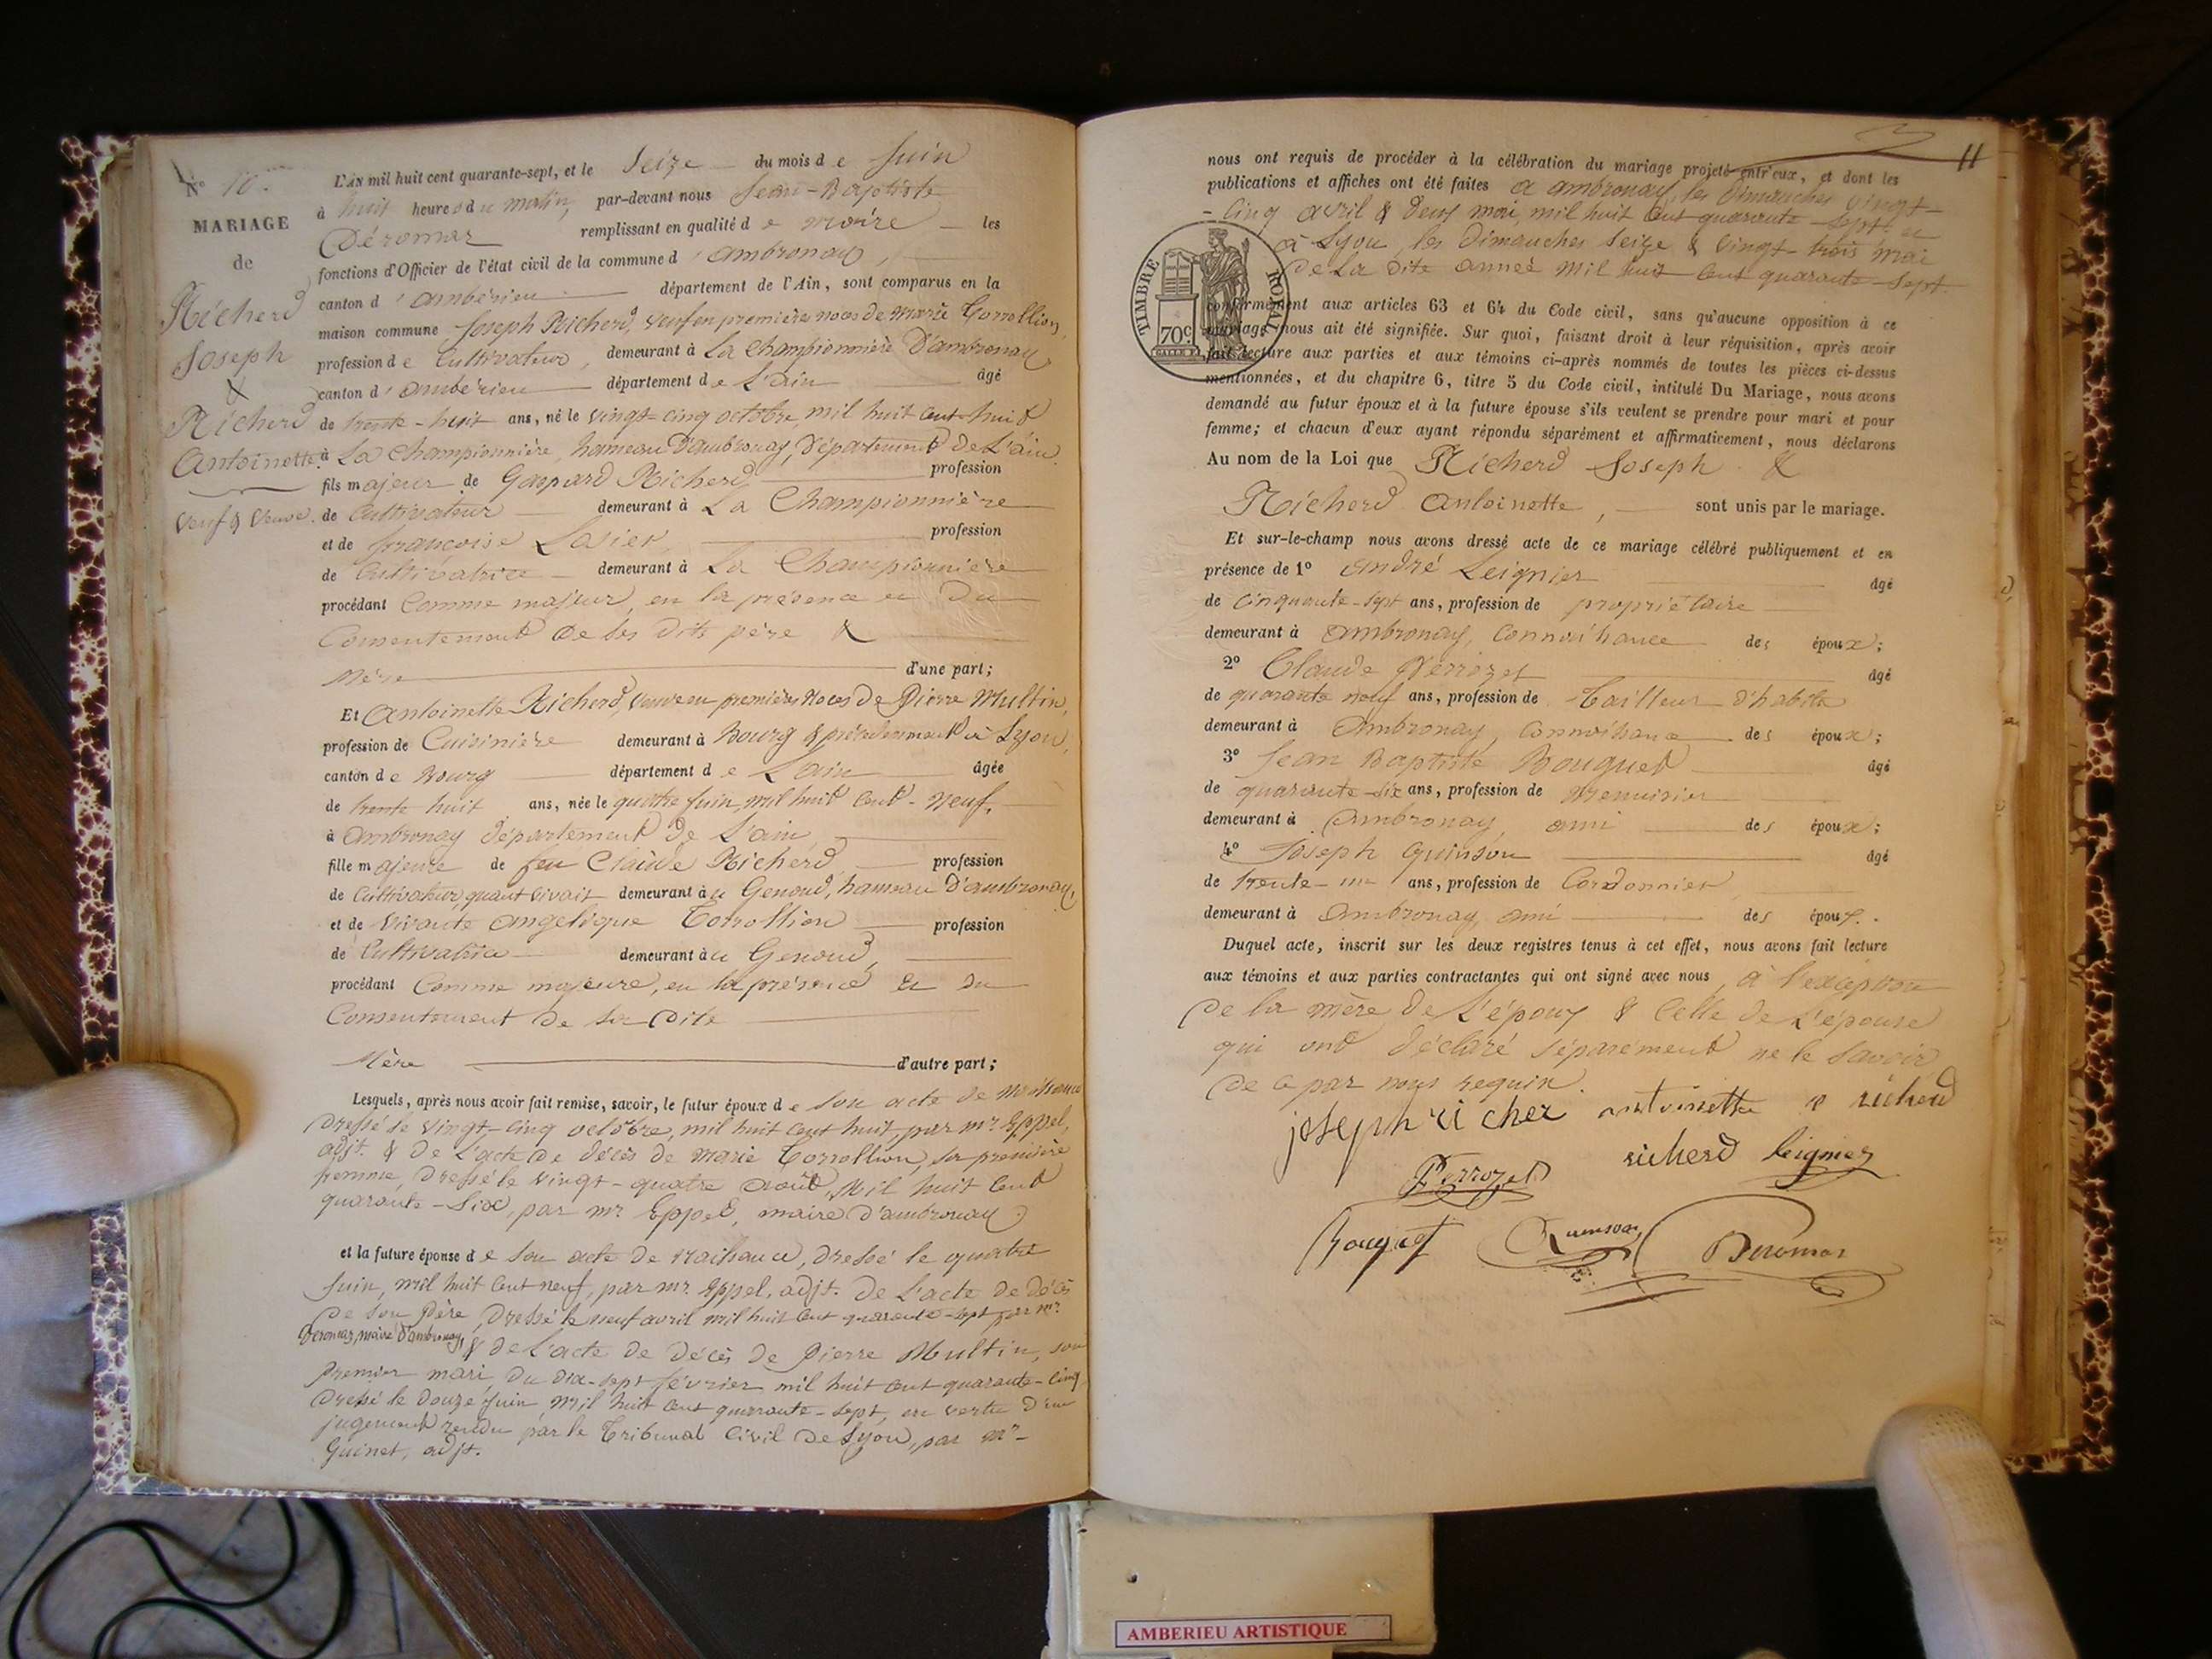 N° 10.
MARIAGE
de
Richerd
Joseph
&
Richerd
Antoinette.
Veuf & Veuve.
L'AN mil huit cent quarante-sept, et le Seize du mois de Juin
à huit heures du matin, par-devant nous Jean-Baptiste
Déromas remplissant en qualité de maire les
fonctions d'Officier de l'état civil de la commune d'ambronay,
canton d'ambérieu département de l'Ain, sont comparus en la
maison commune Joseph Richerd, veuf en premières noces de marie Torrollion,
profession de Cultivateur, demeurant à La Championnière D'ambronay
canton d'ambérieu département de L'ain âgé
de trente-huit ans, né le vingt-cinq octobre, mil huit cent-huit
à La Championnière, hameau D'ambronay, Département De L'ain.
fils majeur de Gaspard Richerd profession
de Cultivateur demeurant à La Championnière
et de françoise Lasier, profession
de Cultivatrice demeurant à La Championnière
procédant Comme majeur, en la présence et Du
Consentement De ses Dits père &
Mère d'une part;
Et Antoinette Richerd, veuve en premières Noces De Pierre Multin,
profession de Cuisinière demeurant à Bourg & précédemment à Lyon,
canton de Bourg département de L'ain âgée
de trente huit ans, née le quatre Juin mil huit cent-neuf,
à Ambronay Département De L'ain
fille majeure de feu Claude Richerd profession
de Cultivateur, quant vivait demeurant au Genoud, hameau D'ambronay,
et de vivante angélique Torrollion profession
de Cultivatrice demeurant au Genoud,
procédant Comme majeure, en la présence et du
Consentement De sa Dite
Mère d'autre part;
Lesquels, après nous avoir fait remise, savoir, le futur époux de son acte de naissance
Dressé le vingt-cinq octobre, mil huit cent huit, par mr. Eppel,
adjt. & De L'acte De décès De Marie Torrollion, sa première
femme, Dressé le vingt-quatre août, Mil huit Cent
quarante-Six, par mr. Eppel, maire D'ambronay
et la future épouse de son acte de naissance, Dressé le quatre
Juin, mil huit cent neuf, par mr. Eppel, adjt. De L'acte De décès
De son Père, Dressé le neuf avril mil huit cent quarante-sept par Mr.
Déromas, maire d'ambronay, & de L'acte de Décès de Pierre Multin, son
premier mari du Dix-sept février mil huit cent quarante-cinq
Dressé le Douze Juin Mil huit cent quarante-sept, en vertu D'un
jugement rendu par le Tribunal Civil De Lyon, par mr
Guinet, adjt.
11
nous ont requis de procéder à la célébration du mariage projeté entr'eux, et dont les
publications et affiches ont été faites à ambronay, les Dimanches vingt-
-Cinq avril & Deux mai, mil huit cent quarante-Sept. et
à Lyon, les Dimanches Seize & Vingt-trois mai
De La Dite année mil huit cent quarante-Sept
TIMBRE ROYAL
70c
conformément aux articles 63 et 64 du Code civil, sans qu'aucune opposition à ce
mariage nous ait été signifiée. Sur quoi, faisant droit à leur réquisition, après avoir
fait lecture aux parties et aux témoins ci-après nommés de toutes les pièces ci-dessus
mentionnées, et du chapitre 6, titre 5 du Code civil, intitulé Du Mariage, nous avons
demandé au futur époux et à la future épouse s'ils veulent se prendre pour mari et pour
femme; et chacun d'eux ayant répondu séparément et affirmativement, nous déclarons
Au nom de la Loi que Richerd Joseph &
Richerd Antoinette, sont unis par le mariage.
Et sur-le-champ nous avons dressé acte de ce mariage célébré publiquement et en
présence de 1° André Leignier âgé
de Cinquante-Sept ans, profession de propriétaire
demeurant à Ambronay, Connaissance des époux;
2° Claude Perrozet âgé
de quarante neuf ans, profession de Tailleur d'habits
demeurant à Ambronay, Connaissance des époux;
3° Jean Baptiste Bouquet âgé
de quarante-six ans, profession de Menuisier
demeurant à Ambronay, ami des époux;
4° Joseph Quinson âgé
de trente-un ans, profession de Cordonnier
demeurant à Ambronay, ami des époux.
Duquel acte, inscrit sur les deux registres tenus à cet effet, nous avons fait lecture
aux témoins et aux parties contractantes qui ont signé avec nous, à l'exception
De la mère De L'époux & Celle De L'épouse
qui ont déclaré séparément ne le savoir
De ce par nous requis.
joseph richer antoinette richerd
richerd leignier
Perrozet
Bouquet Quinson Déromas
AMBERIEU ARTISTIQUE